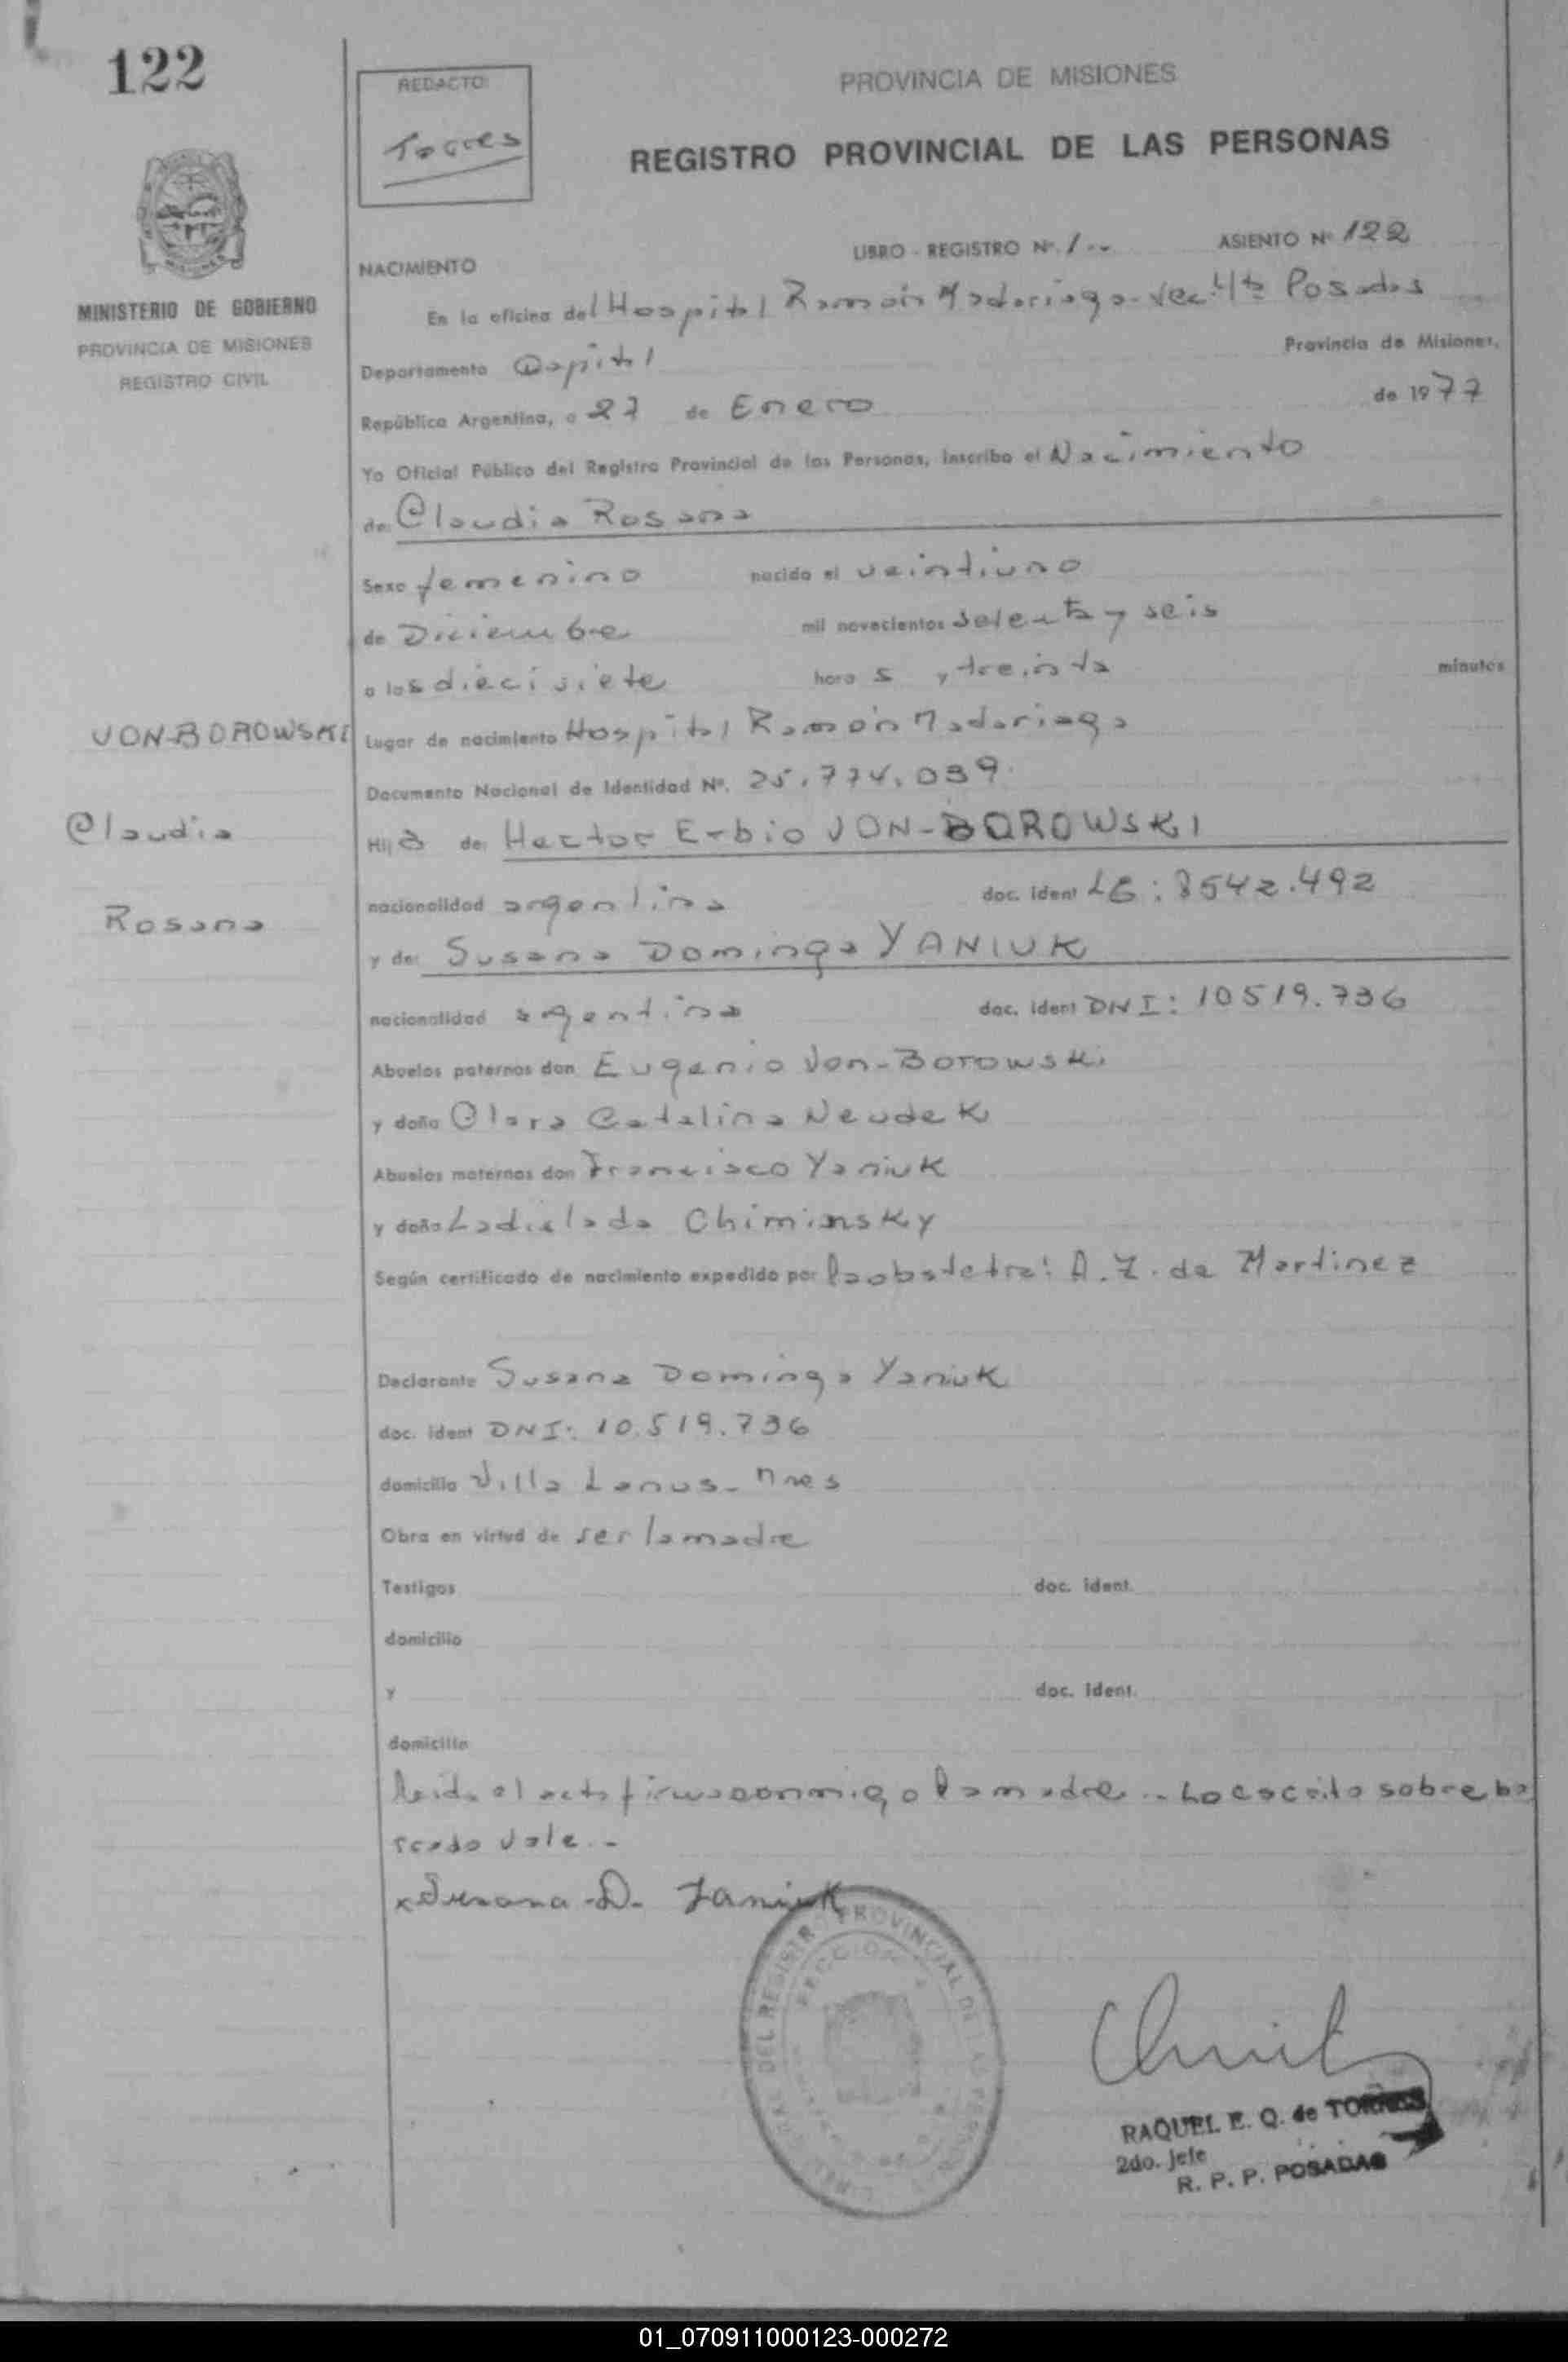 122
REDACTO:
Torres
PROVINCIA DE MISIONES
REGISTRO PROVINCIAL DE LAS PERSONAS
MINISTERIO DE GOBIERNO
PROVINCIA DE MISIONES
REGISTRO CIVIL
LIBRO - REGISTRO Nº. 1 -- ASIENTO Nº 122
NACIMIENTO
En la oficina del Hospital Ramón Madariaga - Secc 4ta Posadas
Departamento Capital Provincia de Misiones,
República Argentina, a 27 de Enero de 1977
Yo Oficial Público del Registro Provincial de las Personas, inscribo el Nacimiento
de: Claudia Rosana
Sexo femenino nacido el veintiuno
de Diciembre mil novecientos setenta y seis
a las diecisiete hora s y treinta minutos
VON-BOROWSKI
Lugar de nacimiento Hospital Ramón Madariaga
Documento Nacional de Identidad Nº. 25.774.039.
Claudia
Hija de: Hector Erbio VON-BOROWSKI
Rosana
nacionalidad argentina doc. ident LE: 8542.492
y de: Susana Dominga YANIUK
nacionalidad argentina doc. ident DNI: 10519.736
Abuelos paternos don Eugenio Von-Borowski
y doña Clara Catalina Neudek
Abuelos maternos don Francisco Yaniuk
y doña Ladislada Chiminsky
Según certificado de nacimiento expedido por la obstetra: A. Z. de Martinez
Declarante Susana Dominga Yaniuk
doc. ident DNI: 10.519.736
domicilio Villa Lanus - Mnes
Obra en virtud de ser la madre
Testigos doc. ident.
domicilio
y doc. ident.
domicilio
leida el acta firma conmigo la madre -- Lo escrito sobre bo
rrado Vale. -
x Susana D. Yaniuk
DEL REGISTRO PROVINCIAL DE LAS PERSONAS
SECCION
RAQUEL E. Q. de TORRES
2do. Jefe
R. P. P. POSADAS
01_070911000123-000272